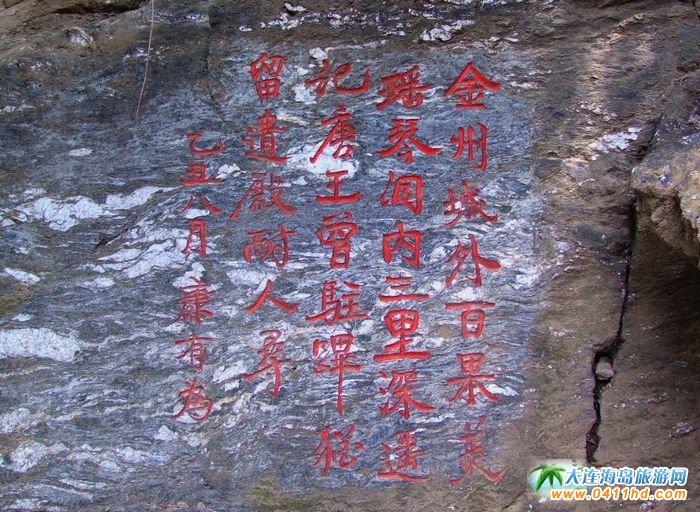 金州城外百果美
瑶琴洞内三里深遥
記唐王曾駐蹕猶
留遺殿耐人尋
乙丑八月 康有為
大连海岛旅游网
www.0411hd.com